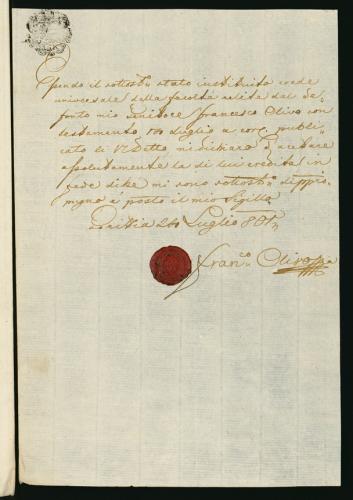 Essendo il sottost.º stato instituito erede
universale della facoltà relita dal De-
fonto mio Genitore Francesco Olivo con
testamento Luglio a corr. publi-
cato li detto mi dichiaro d' accettare
assolutamente la di lui eredità in
fede di che mi sono sottost.º di pro-
pugno e posto il mio Sigillo
Luglio
Fran.co Olivo